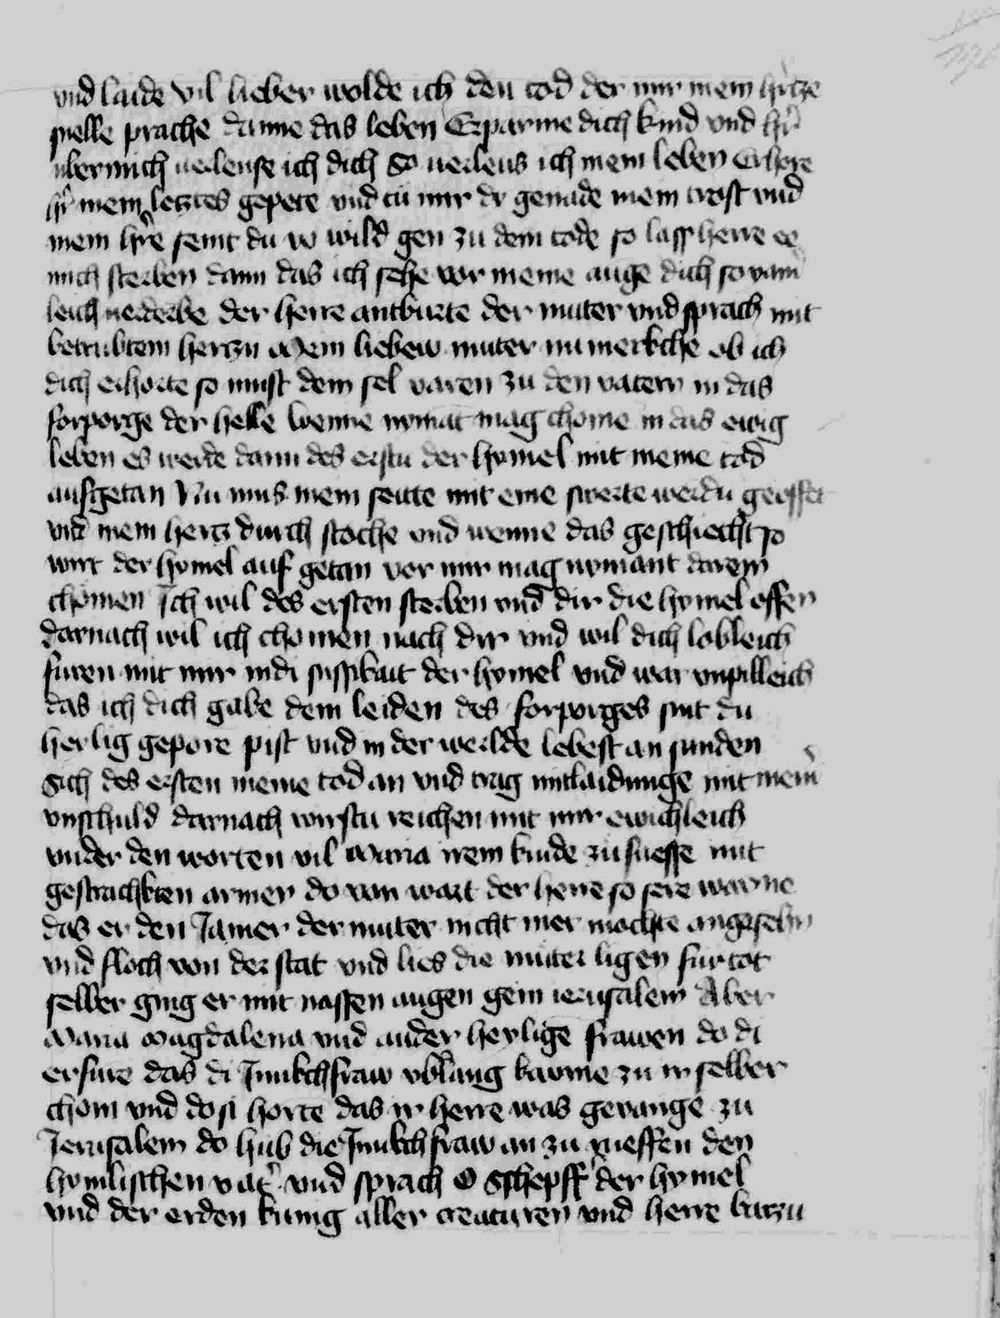 vnd laide vil lieber wolde ich den tod der mir mein hercze
snelle prache danne das leben Erparme dich kind vnd hr̄
uber mich verleuse ich dich So verleus ich mein leben Erhore
hr̄ mein letztes gepete vnd tu mir di genade mein trost vnd
mein hr̄e seint du io wild gen zu dem tode so lass herre ee
mich sterben dann das ich sehe vor meine auge dich so
leich verderbe der herre antburte der muter vnd sprach mit
betrubtem herczn Mein liebew muter nu merkche ob ich
dich erhorte so must dein sel varen zu den vatern in das
forporge der helle wenne nymat mag chome in das ewig
leben es werde dann des erstn der hymel mit meine tod
aufgetan Nu mus mein seitte mit eine swerte werdn geoffet
vnd mein hercz durch stoche vnd wenne das geschiecht so
wirt der hymel auf getan vor mir mag nymant darein
chomen Ich wil des ersten sterben vnd dir die hymel offen
darnach wil ich chomen nach dir vnd wil dich lobleich
furen mit mir in di sussikait der hymel vnd war vnpilleich
das ich dich gabe dem leiden des forporges sint du
heylig gepore pist vnd in der werlde lebest an sunden
Sich des ersten meine tod an vnd trag mitlaidunge mit mein
vnschuld darnach wirstu reichen mit mir ewichleich
vnder den worten vil Maria irem kinde zu fuesse mit
gestrachkten armen do von wart der herre so sere
das er den Jamer der muter nicht mer mochte angesehn
vnd floch von der stat vnd lies die muter ligen fur tot
selber ging er mit nassen augen gein ierusalem Aber
Maria Magdalena vnd ander heylige frawen do di
erfure das di Junkchfraw vblang kawme zu ir selber
chom vnd do si horte das ir herre was gevange zu
Jerusalem do hub die Junkchfraw an zu rueffen den
hymlischen vat̄ vnd sprach O Schepff̄ der hymel
vnd der erden kunig aller creaturen vnd herre